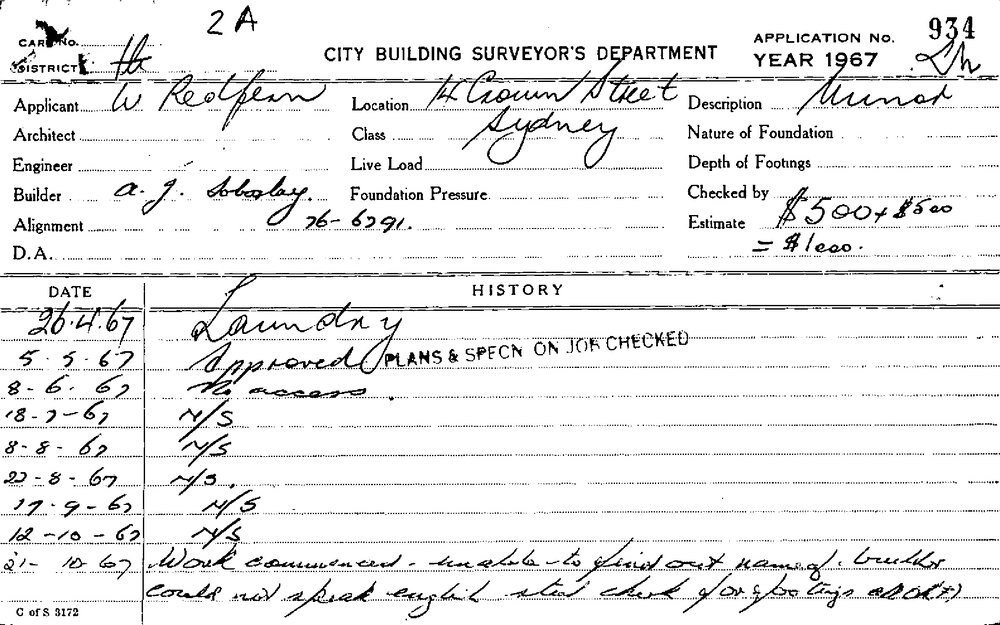 2A
CARD No.
DISTRICT
CITY BUILDING SURVEYOR'S DEPARTMENT
APPLICATION No. 934
YEAR 1967
Applicant W Redfern
Location 14 Crown Street
Sydney
Description Minor
Architect
Class
Nature of Foundation
Engineer
Live Load
Depth of Footings
Builder A. J.
Foundation Pressure
Checked by
Alignment 76-6791.
Estimate $500 + $500
= $1000.
D.A.
DATE HISTORY
26.4.67 Laundry
5.5.67 Approved PLANS & SPECN ON JOB CHECKED
8-6-67 No access.
18-7-67 N/S
8-8-67 N/S
22-8-67 N/S.
17-9-67 N/S
12-10-67 N/S
21-10-67 Work commenced - unable to find out name of builder
could not speak english check for footings
C of S 3172